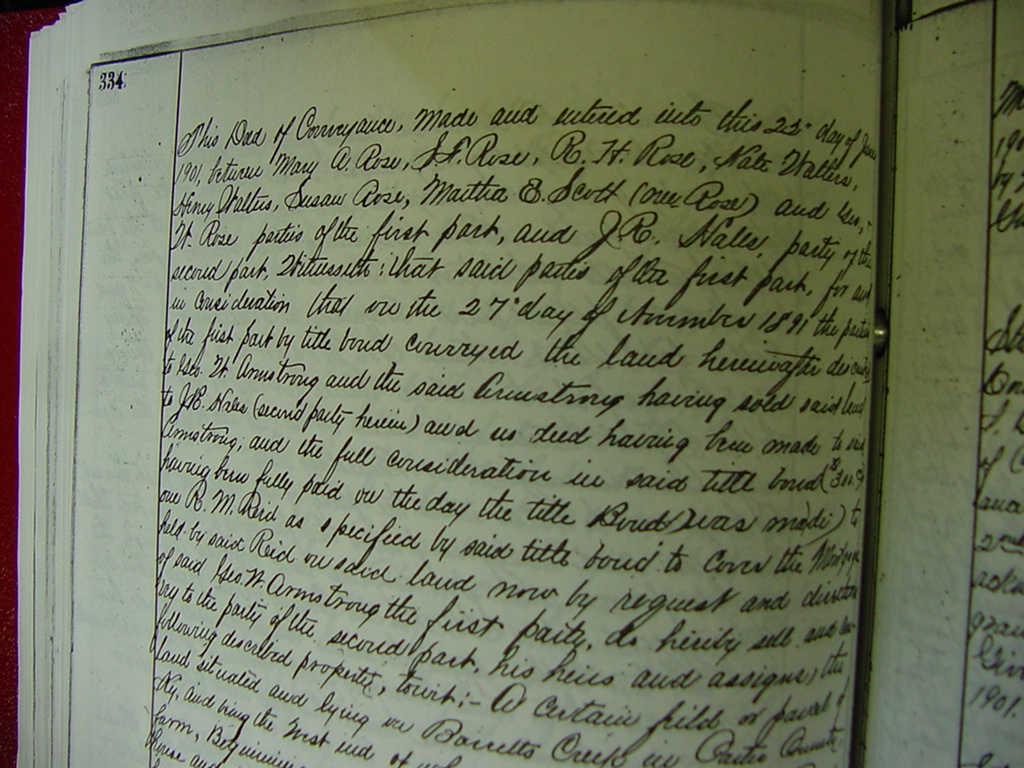 334
This Deed of Conveyance, Made and entered into this 22" day of June
1901, between Mary A. Rose, J. F. Rose, R. H. Rose, Nate Walters,
Henry Walters, Susan Rose, Martha E. Scott (over Rose) and Geo,
W. Rose parties of the first part, and J. R. Nalls, party of the
second part, Witnesseth: that said parties of the first part, for and
in consideration that on the 27" day of November 1891 the parties
of the first part by title bond conveyed the land hereinafter described
to Geo. W Armstrong and the said Armstrong having sold said land
to J.R. Nalls (second party herein) and no deed having been made to said
Armstrong, and the full consideration in said title bond ($300
having been fully paid on the day the title Bond was made) to
one R. M. Reid as specified by said title bond to cover the Mortgage
held by said Reid on said land now by request and direction
of said Geo. W. Armstrong the first party, do hereby sell and con
vey to the party of the second part, his heirs and assigns, the
following described property, towit:- A certain field or parcel of
land situated and lying on Barretts Creek in Carter County
Ky, and being the West end of
farm, Beginning
1901.